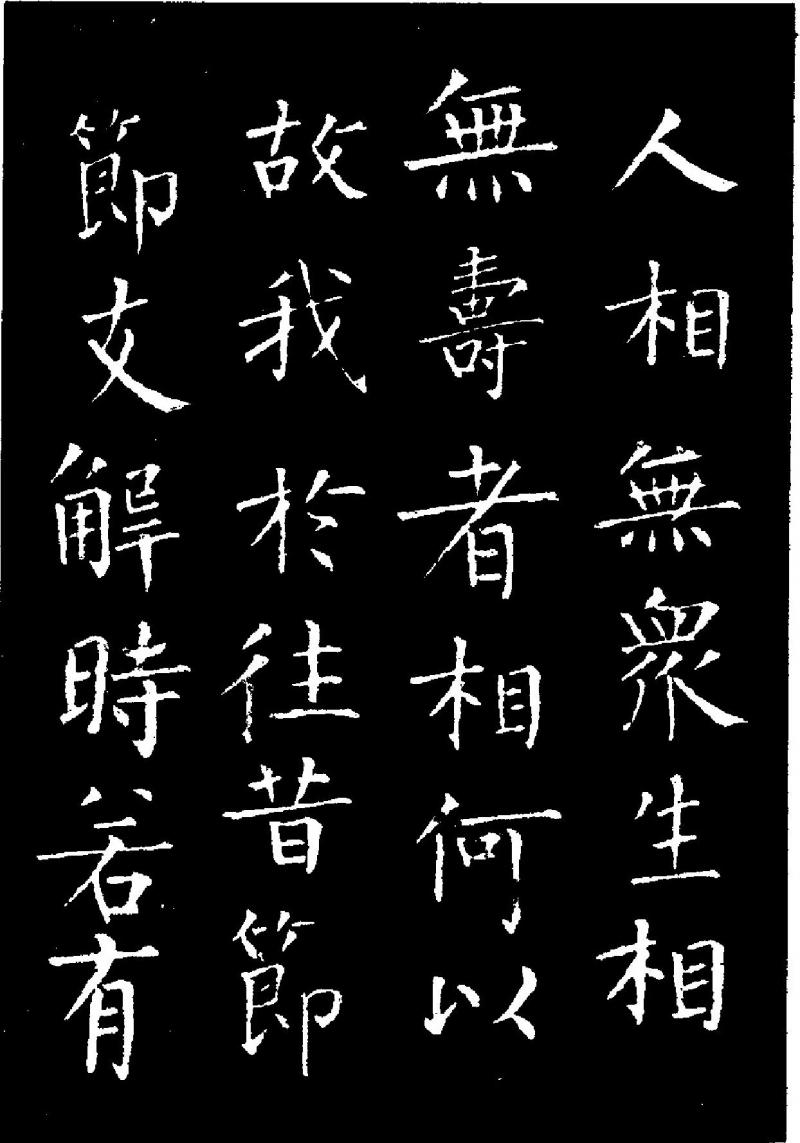 人相無衆生相
無壽者相何以
故我於往昔節
節支解時若有